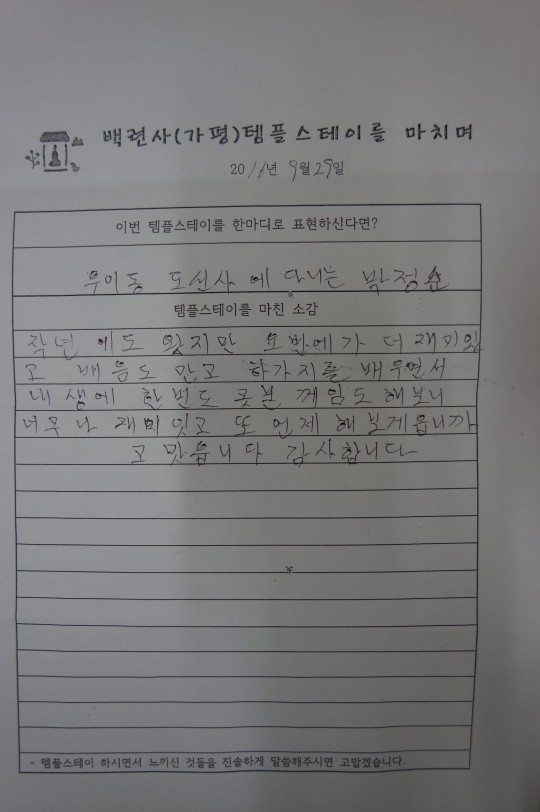 백련사(가평)템플스테이를 마치며
2016년 9월 29일
이번 템플스테이를 한마디로 표현하신다면?
우이동 도선사 에 다니는 박정순
템플스테이를 마친 소감
작년 에도 왔지만 요번에가 더 재미있
고 배움도 만고 한가지를 배우면서
내 생에 한번도 못본 께임도 해보니
너무 나 재미잇고 또 언제 해보게읍니까
고맛읍니다 감사합니다
- 템플스테이 하시면서 느끼신 것들을 진솔하게 말씀해주시면 고맙겠습니다.